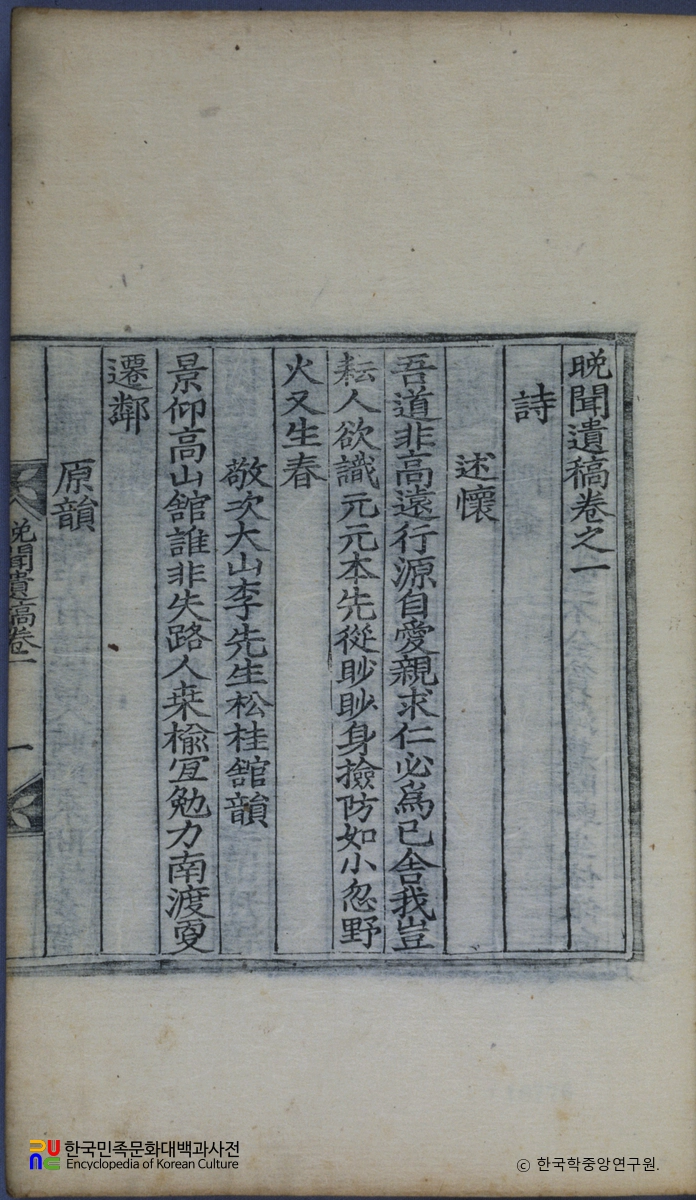 晩聞遺稿卷之一
詩
述懷
吾道非高遠行源自愛親求仁必爲己舍我豈
耘人欲識元元本先從眇眇身撿防如小忽野
火又生春
敬次大山李先生松桂舘韻
景仰高山舘誰非失路人桒楡冝勉力南渡更
遷鄰
原韻
晩聞遺稿卷一
一
한국민족문화대백과사전
Encyclopedia of Korean Culture
© 한국학중앙연구원.